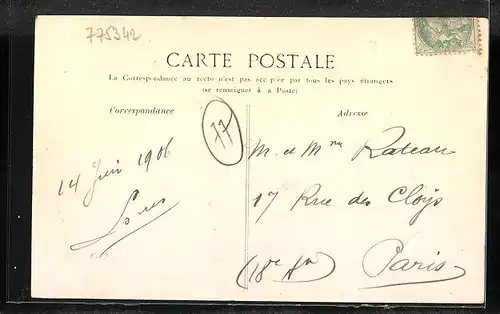 775342
CARTE POSTALE
La Correspondance au recto n'est pas acceptée par tous les pays étrangers
(se renseigner à la Poste)
Correspondance
Adresse
77
14 Juin 1906
M. et Mme Rateau
17 Rue des Cloÿs
(18e Arr)
Paris